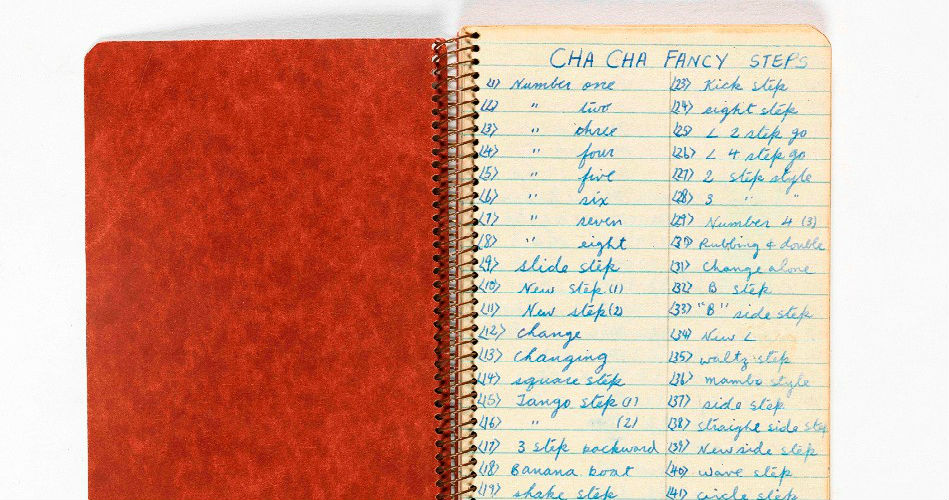 CHA CHA FANCY STEPS
(1) Number one
(2) " two
(3) " three
(4) " four
(5) " five
(6) " six
(7) " seven
(8) " eight
(9) slide step
(10) New step (1)
(11) New step (2)
(12) change
(13) changing
(14) square step
(15) Tango step (1)
(16) " (2)
(17) 3 step backward
(18) Banana boat
(19) shake step
(23) Kick step
(24) eight step
(25) L 2 step go
(26) L 4 step go
(27) 2 step style
(28) 3 " "
(29) Number 4 (3)
(30) Rubbing & double
(31) Change alone
(32) B step
(33) "B" side step
(34) New L
(35) waltz step
(36) mambo style
(37) side step
(38) straight side step
(39) New side step
(40) wave step
(41) circle step